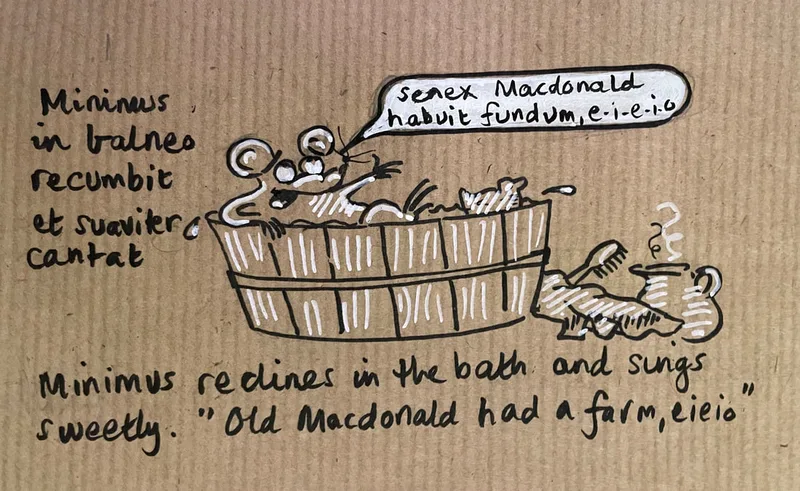 Minimus
in balneo
recumbit
et suaviter
cantat
senex Macdonald
habuit fundum, e-i-e-i-o
Minimus reclines in the bath and sings
sweetly. "Old Macdonald had a farm, eieio"